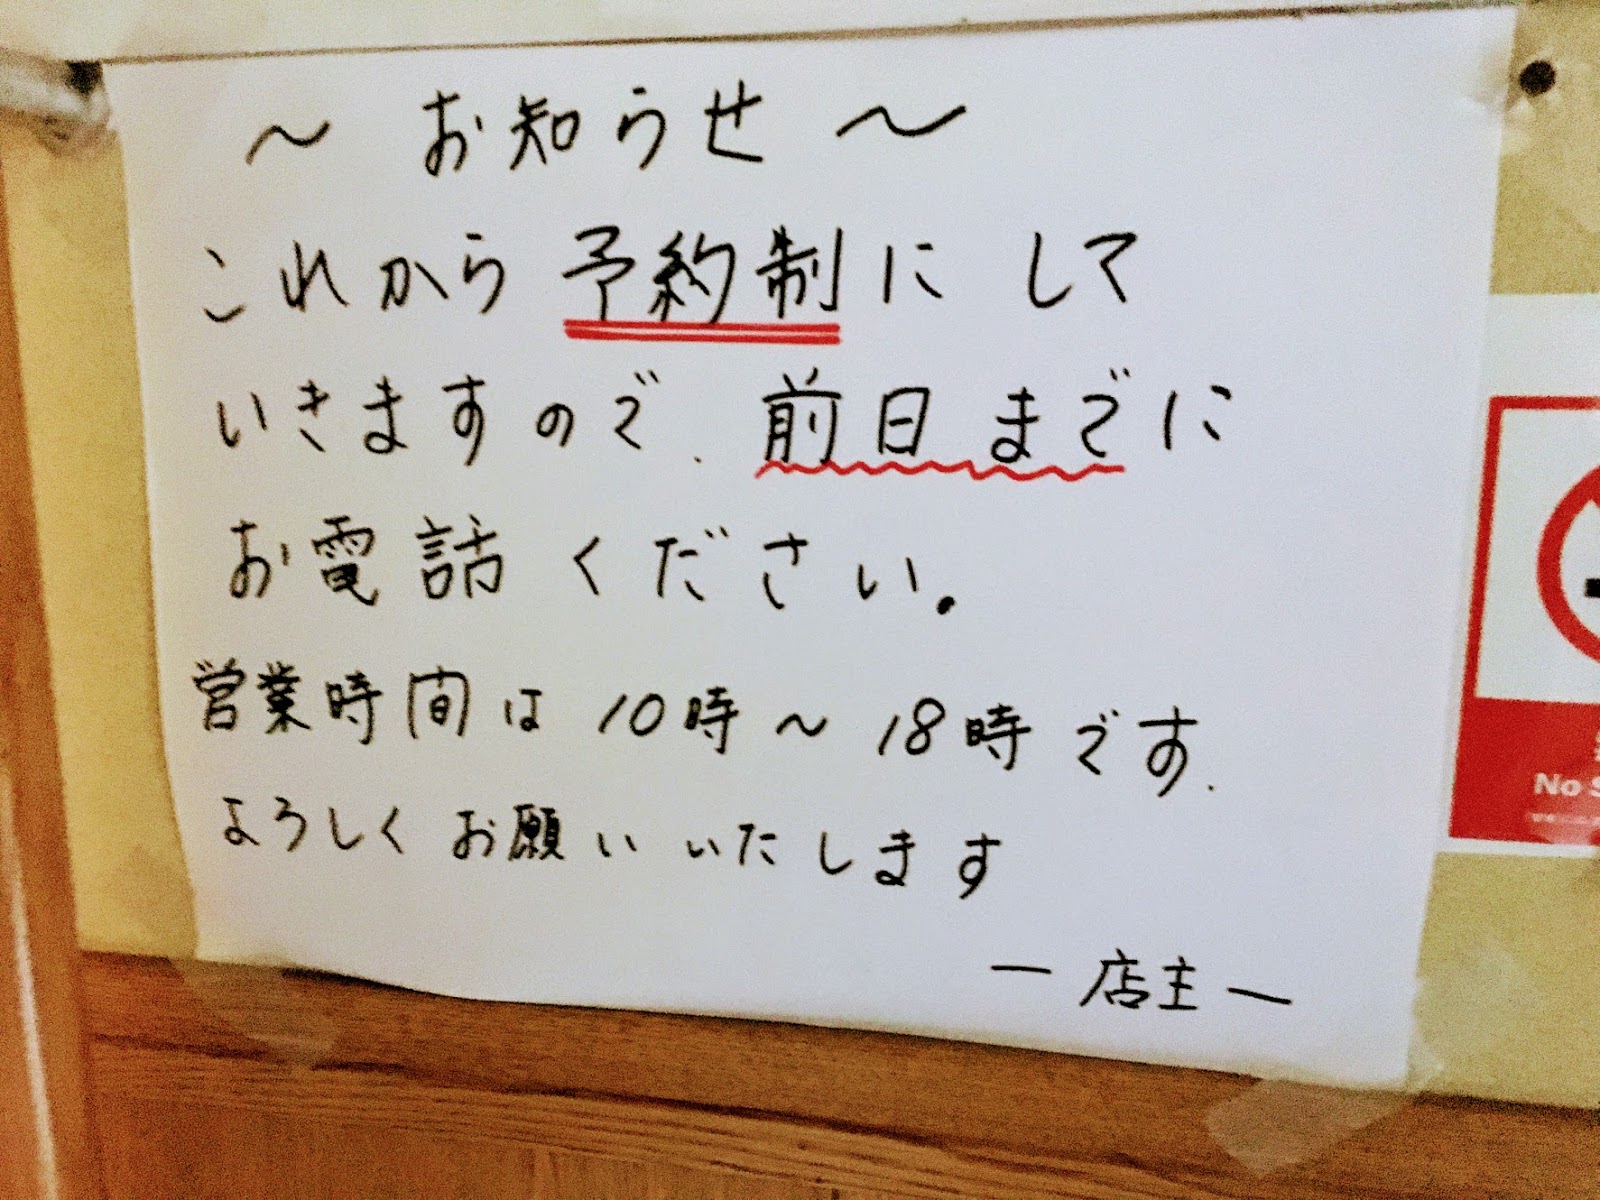 ～ お知らせ ～
これから予約制にして
いきますので、前日までに
お電話ください。
営業時間は10時～18時です.
よろしくお願いいたします
ー店主ー
No S